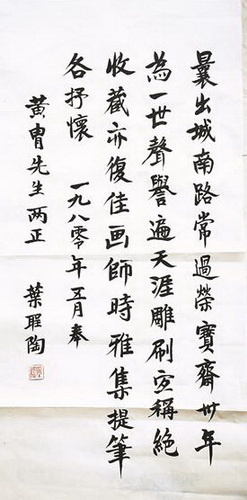 曩出城南路常過榮寶齋卅年
為一世聲譽遍天涯雕刷宜稱絕
收藏亦復佳画師時雅集提筆
各抒懷 一九八零年五月奉
黃胄先生两正 葉聖陶